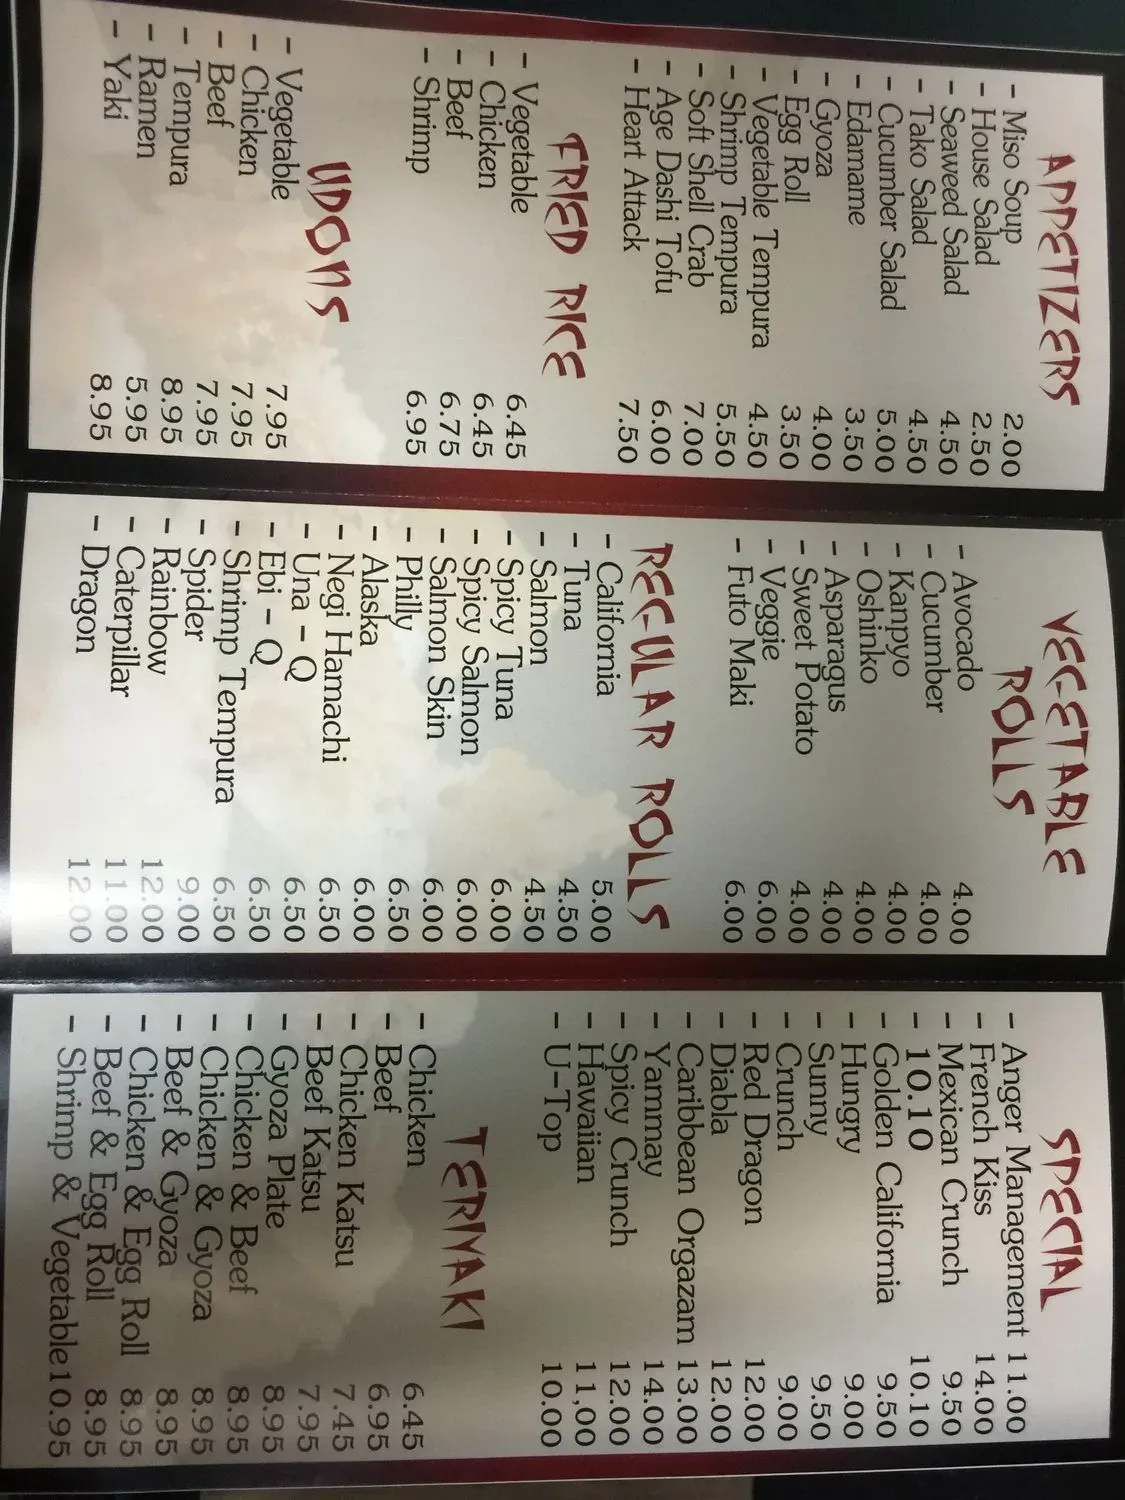 APPETIZERS
- Miso Soup 2.00
- House Salad 2.50
- Seaweed Salad 4.50
- Tako Salad 4.50
- Cucumber Salad 5.00
- Edamame 3.50
- Gyoza 4.00
- Egg Roll 3.50
- Vegetable Tempura 4.50
- Shrimp Tempura 5.50
- Soft Shell Crab 7.00
- Age Dashi Tofu 6.00
- Heart Attack 7.50
FRIED RICE
- Vegetable 6.45
- Chicken 6.45
- Beef 6.75
- Shrimp 6.95
UDONS
- Vegetable 7.95
- Chicken 7.95
- Beef 7.95
- Tempura 8.95
- Ramen 5.95
- Yaki 8.95
VEGETABLE
ROLLS
- Avocado 4.00
- Cucumber 4.00
- Kanpyo 4.00
- Oshinko 4.00
- Asparagus 4.00
- Sweet Potato 4.00
- Veggie 6.00
- Futo Maki 6.00
REGULAR ROLLS
- California 5.00
- Tuna 4.50
- Salmon 4.50
- Spicy Tuna 6.00
- Spicy Salmon 6.00
- Salmon Skin 6.00
- Philly 6.50
- Alaska 6.00
- Negi Hamachi 6.50
- Una - Q 6.50
- Ebi - Q 6.50
- Shrimp Tempura 6.50
- Spider 9.00
- Rainbow 12.00
- Caterpillar 11.00
- Dragon 12.00
SPECIAL
- Anger Management 11.00
- French Kiss 14.00
- Mexican Crunch 9.50
- 10.10 10.10
- Golden California 9.50
- Hungry 9.00
- Sunny 9.50
- Crunch 9.00
- Red Dragon 12.00
- Diabla 12.00
- Caribbean Orgazam 13.00
- Yammay 14.00
- Spicy Crunch 12.00
- Hawaiian 11,00
- U-Top 10.00
TERIYAKI
- Chicken 6.45
- Beef 6.95
- Chicken Katsu 7.45
- Beef Katsu 7.95
- Gyoza Plate 8.95
- Chicken & Beef 8.95
- Chicken & Gyoza 8.95
- Beef & Gyoza 8.95
- Chicken & Egg Roll 8.95
- Beef & Egg Roll 8.95
- Shrimp & Vegetable 10.95